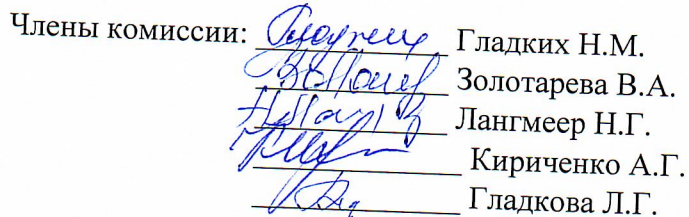 Члены комиссии: Гладких Н.М.
Золотарева В.А.
Лангмеер Н.Г.
Кириченко А.Г.
Гладкова Л.Г.